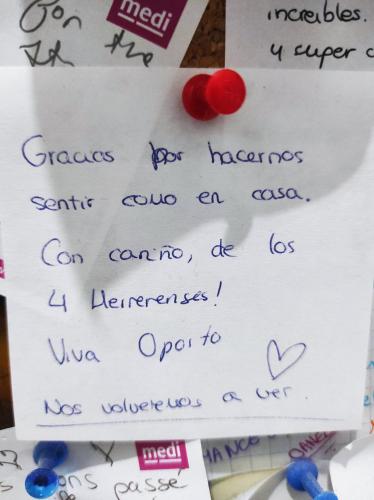 con
medi
the
increíbles.
y super c
Gracias por hacernos
sentir como en casa.
Con cariño, de los
4 Herrerenses!
Viva Oporto
Nos volveremos a ver.
medi
ons passé